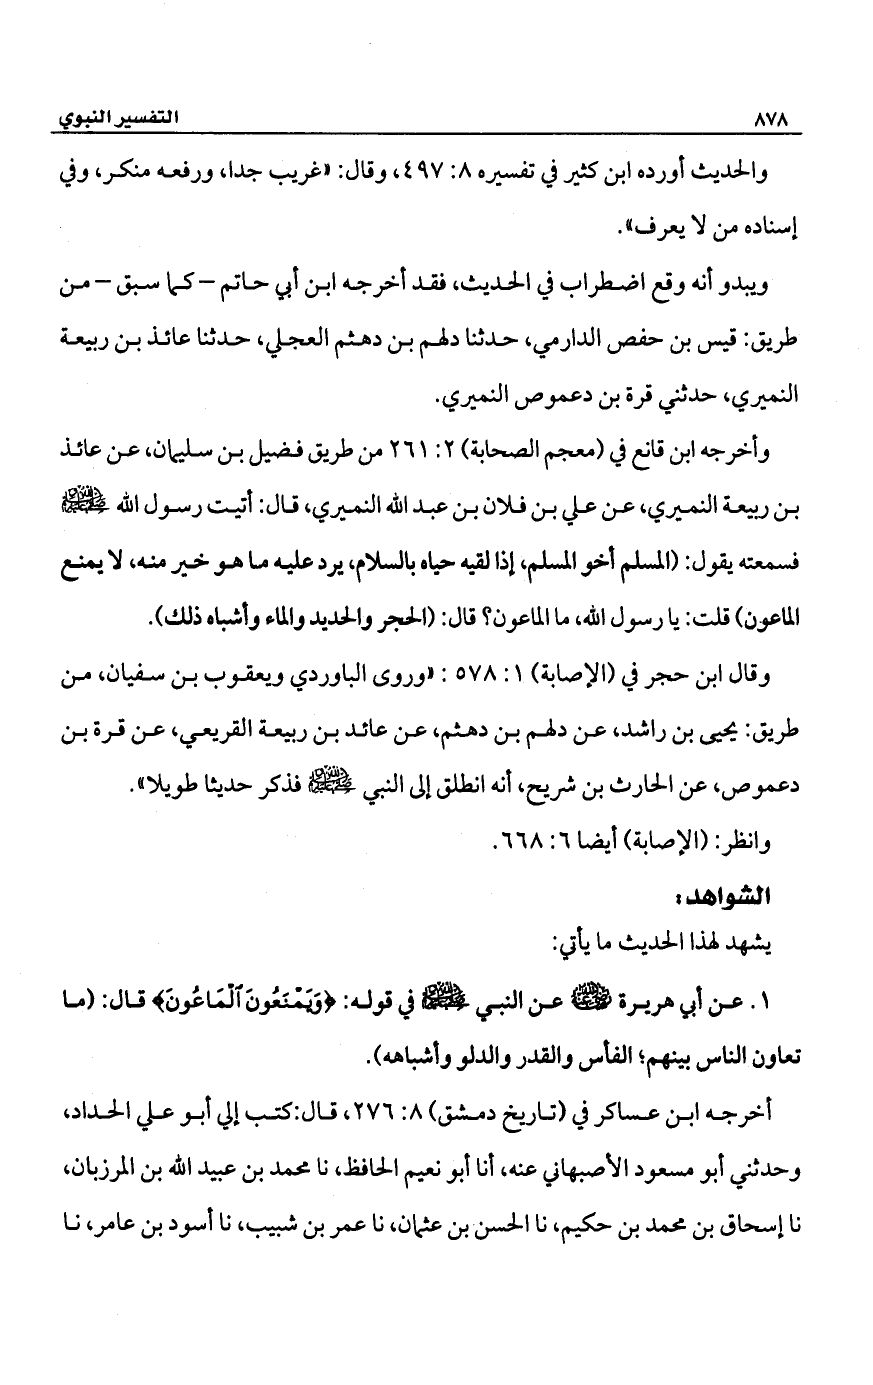 ٨٧٨ التفسير النبوي
والحديث أورده ابن كثير في تفسيره ٨: ٤٩٧، وقال: «غريب جدا، ورفعه منكر، وفي
إسناده من لا يعرف».
ويبدو أنه وقع اضطراب في الحديث، فقد أخرجه ابن أبي حاتم – كما سبق – من
طريق: قيس بن حفص الدارمي، حدثنا دلهم بن دهثم العجلي، حدثنا عائذ بن ربيعة
النميري، حدثني قرة بن دعموص النميري.
وأخرجه ابن قانع في (معجم الصحابة) ٢: ٢٦١ من طريق فضيل بن سليمان، عن عائذ
بن ربيعة النميري، عن علي بن فلان بن عبد الله النميري، قال: أتيت رسول الله ﷺ
فسمعته يقول: (المسلم أخو المسلم، إذا لقيه حياه بالسلام، يرد عليه ما هو خير منه، لا يمنع
الماعون) قلت: يا رسول الله، ما الماعون؟ قال: (الحجر والحديد والماء وأشباه ذلك).
وقال ابن حجر في (الإصابة) ١: ٥٧٨ : «وروى الباوردي ويعقوب بن سفيان، من
طريق: يحيى بن راشد، عن دلهم بن دهثم، عن عائد بن ربيعة القريعي، عن قرة بن
دعموص، عن الحارث بن شريح، أنه انطلق إلى النبي ﷺ فذكر حديثا طويلا».
وانظر: (الإصابة) أيضا ٦: ٦٦٨.
الشواهد:
يشهد لهذا الحديث ما يأتي:
١. عن أبي هريرة رضي الله عنه عن النبي ﷺ في قوله: ﴿وَيَمْنَعُونَ ٱلْمَاعُونَ﴾ قال: (ما
تعاون الناس بينهم؛ الفأس والقدر والدلو وأشباهه).
أخرجه ابن عساكر في (تاريخ دمشق) ٨: ٢٧٦، قال:كتب إلي أبو علي الحداد،
وحدثني أبو مسعود الأصبهاني عنه، أنا أبو نعيم الحافظ، نا محمد بن عبيد الله بن المرزبان،
نا إسحاق بن محمد بن حكيم، نا الحسن بن عثمان، نا عمر بن شبيب، نا أسود بن عامر، نا